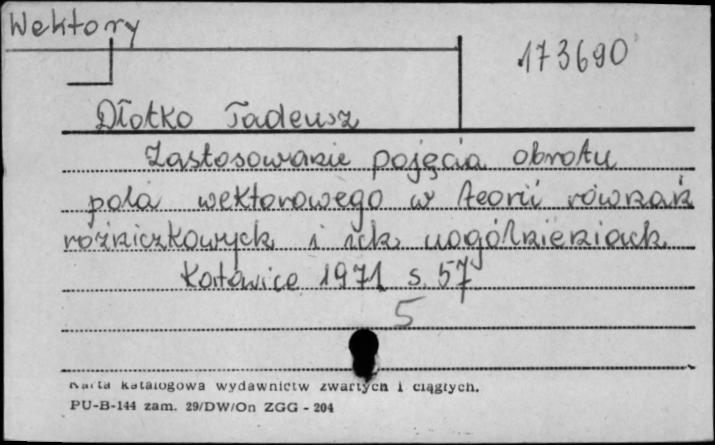 Wektory
173690
Dłotko Tadeusz
Zastosowanie pojęcia obrotu
pola wektorowego w teorii równań
różniczkowych i ich uogólnieniach
Katowice 1971 s. 57
5
Karta katalogowa wydawnictw zwartych i ciągłych.
PU-B-144 zam. 29/DW/On ZGG - 204